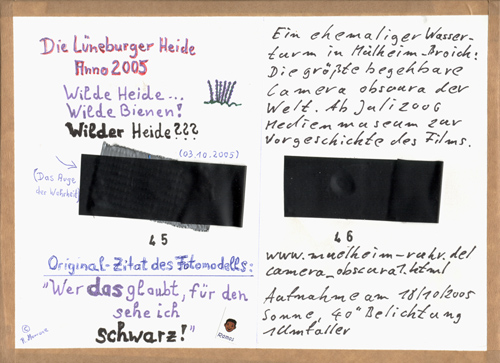 Die Lüneburger Heide
Anno 2005
Wilde Heide...
Wilde Bienen!
Wilder Heide???
(03.10.2005)
(Das Auge
der Wahrheit)
45
Original-Zitat des Fotomodells:
"Wer das glaubt, für den
sehe ich
schwarz!"
©
Ramos
Ein ehemaliger Wasser-
turm in Mülheim-Broich:
Die größte begehbare
Camera obscura der
Welt. Ab Juli 2006
Medienmuseum zur
Vorgeschichte des Films.
46
www.muelheim-ruhr.de/
camera_obscura1.html
Aufnahme am 18/10/2005
Sonne, 40" Belichtung
1 Umfaller